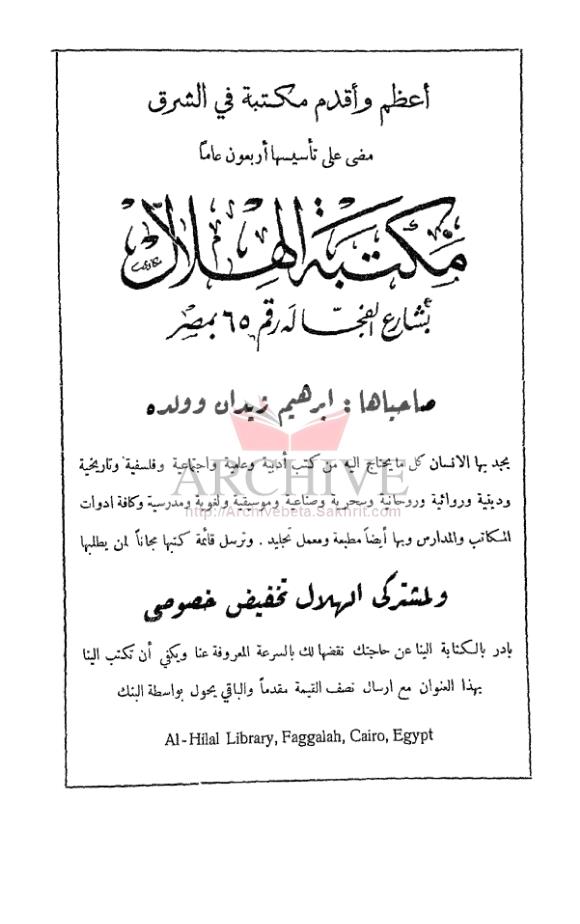 أعظم وأقدم مكتبة في الشرق
مضى على تأسيسها أربعون عاماً
مكتبة الهلال
بشارع الفجّاله رقم ٦٥ بمصر
صاحباها : ابرهيم زيدان وولده
يجد بها الانسان كل ما يحتاج اليه من كتب أدبية وعلمية واجتماعية وفلسفية وتاريخية
ARCHIVE
ودينية وروائية وروحانية وسحرية وصناعية وموسيقية ولغوية ومدرسية وكافة ادوات
http://Archivebeta.Sakhrit.com
المكاتب والمدارس وبها أيضاً مطبعة ومعمل تجليد . وترسل قائمة كتبها مجاناً لمن يطلبها
ولمشتركي الهلال تخفيض خصوصي
بادر بالكتابة الينا عن حاجتك نقضها لك بالسرعة المعروفة عنا ويكفي أن تكتب الينا
بهذا العنوان مع ارسال نصف القيمة مقدماً والباقي يحول بواسطة البنك
Al-Hilal Library, Faggalah, Cairo, Egypt